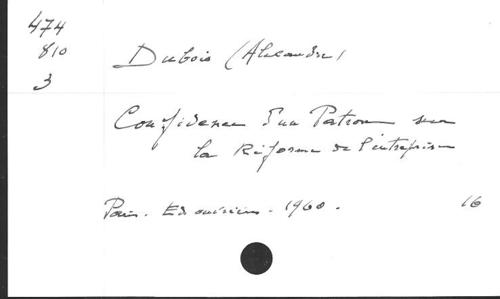 474
810
3
Dubois (Alexandre)
Confidences d'un Patron sur
la Réforme de l'entreprise
Paris. Ed ouvrières. 1960. 16